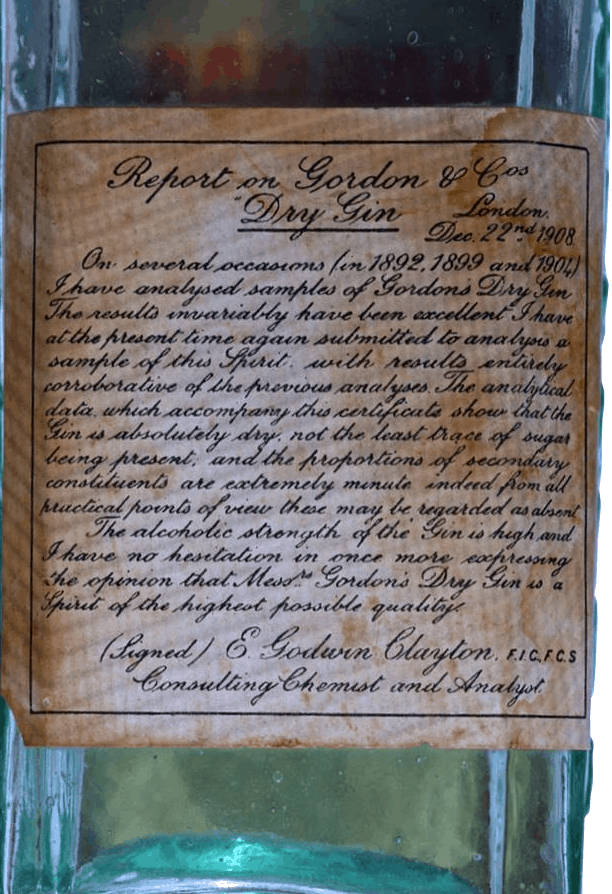 Report on Gordon & Cos
"Dry Gin
London.
Dec. 22nd 1908.
On several occasions (in 1892, 1899 and 1904)
I have analysed samples of Gordon's Dry Gin
The results invariably have been excellent I have
at the present time again submitted to analysis a
sample of this Spirit. with results entirely
corroborative of the previous analyses. The analytical
data, which accompany this certificate show that the
Gin is absolutely dry, not the least trace of sugar
being present; and the proportions of secondary
constituents are extremely minute indeed from all
practical points of view these may be regarded as absent
The alcoholic strength of the Gin is high and
I have no hesitation in once more expressing
the opinion that Messrs Gordon's Dry Gin is a
Spirit of the highest possible quality.
(Signed) E. Godwin Clayton. F.I.C., F.C.S
Consulting Chemist and Analyst.